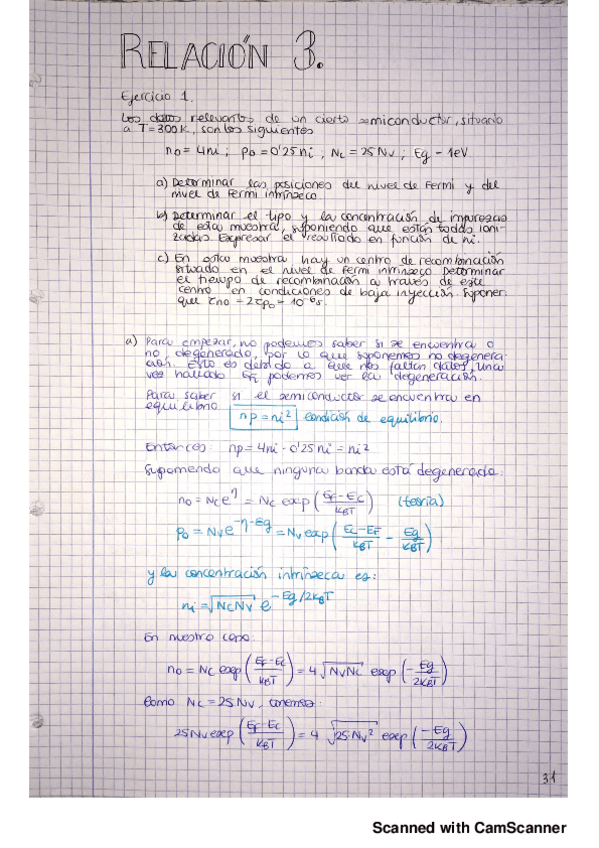 RELACIÓN 3.
Ejercicio 1.
Los datos relevantes de un cierto semiconductor, situado
a T=300K, son los siguientes
n₀ = 4ni ; p₀ = 0'25 ni ; Nc = 25 Nv ; Eg - 1eV
a) Determinar las posiciones del nivel de Fermi y del
nivel de Fermi intrínseco.
b) Determinar el tipo y la concentración de impurezas
de esta muestra, suponiendo que están todas ioni-
zadas. Expresar el resultado en función de ni.
c) En esta muestra hay un centro de recombinación
situado en el nivel de Fermi intrínseco. Determinar
el tiempo de recombinación a través de este
centro en condiciones de baja inyección. Suponer
que τn₀ = 2τp₀ = 10⁻⁶s.
a) Para empezar, no podemos saber si se encuentra o
no degenerado, por lo que suponemos no degenera-
ción. Esto es debido a que nos faltan datos, una
vez hallado EF podemos ver la degeneración.
Para saber si el semiconductor se encuentra en
equilibrio np = ni² condición de equilibrio.
Entonces: np = 4ni · 0'25 ni = ni²
Suponiendo que ninguna banda está degenerada:
n₀ = Nc e^η = Nc exp((EF-Ec)/KBT) (teoría)
p₀ = Nv e^(-η-Eg) = Nv exp((Ec-EF)/KBT - Eg/KBT)
y la concentración intrínseca es:
ni = √(NcNv) e^(-Eg/2KBT)
En nuestro caso:
n₀ = Nc exp((EF-Ec)/KBT) = 4 √(NvNc) exp(-Eg/2KBT)
Como Nc = 25Nv, tenemos:
25Nv exp((EF-Ec)/KBT) = 4 √(25·Nv²) exp(-Eg/2KBT)
31
Scanned with CamScanner